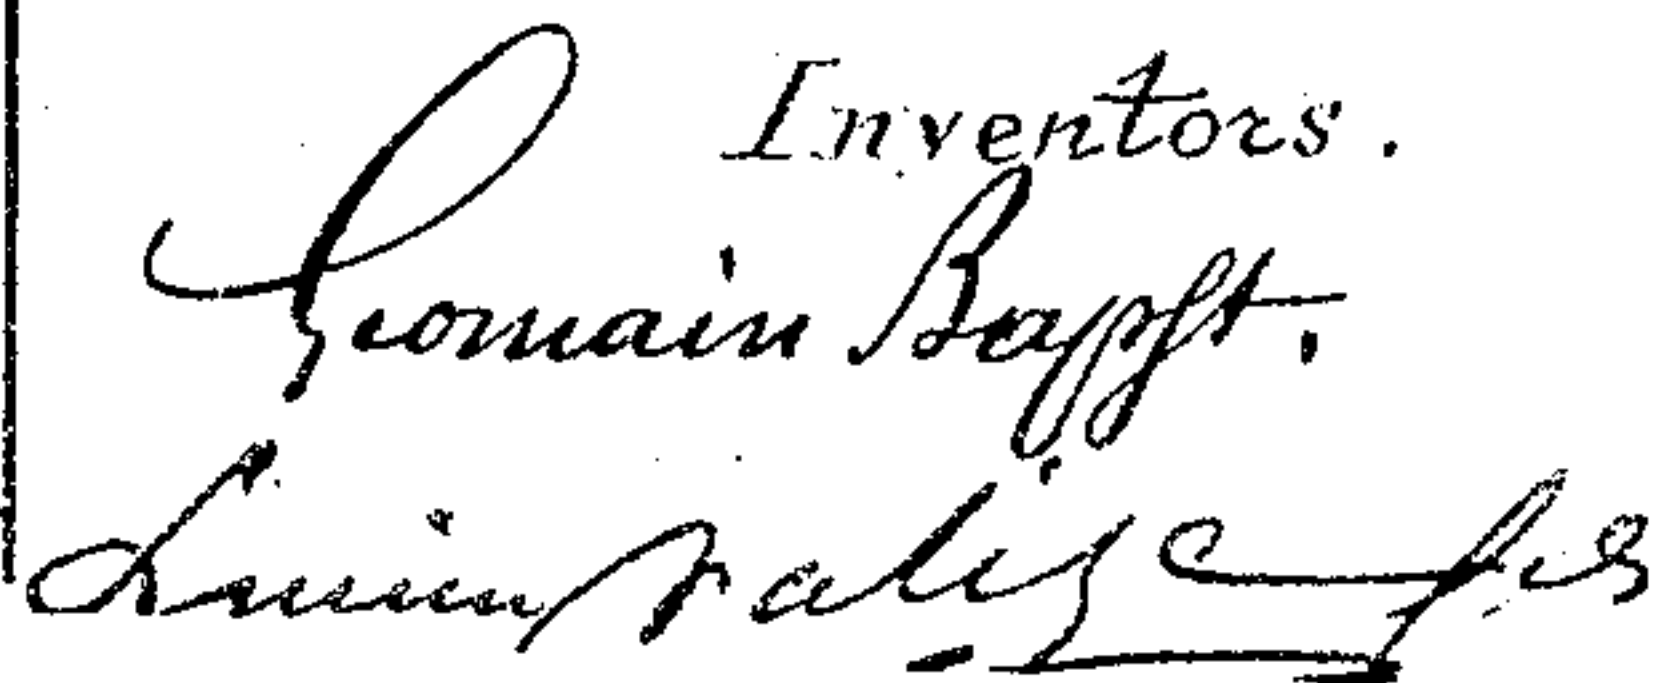 Inventors.
Germain Bapst.
Lucien Falize fils